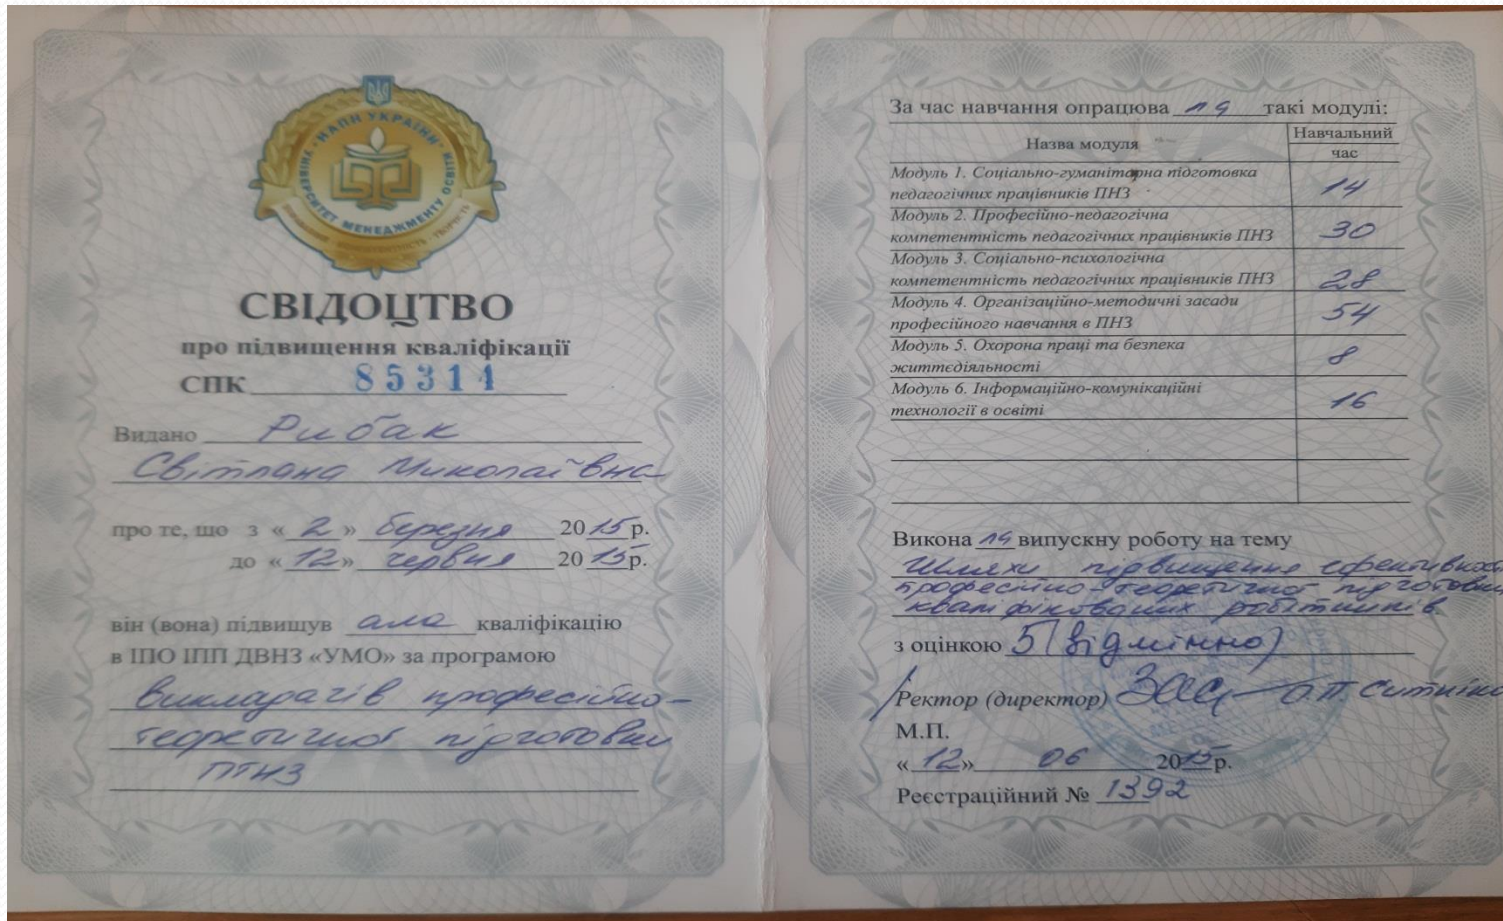 НАПН УКРАЇНИ
УНІВЕРСИТЕТ МЕНЕДЖМЕНТУ ОСВІТИ
СВІДОЦТВО
про підвищення кваліфікації
СПК 85314
Видано Рибак
Світлана Миколаївна
про те, що з «2» березня 2015р.
до «12» червня 2015р.
він (вона) підвищув ала кваліфікацію
в ІПО ІПП ДВНЗ «УМО» за програмою
викладачів професійно-
теоретичної підготовки
ПТНЗ
За час навчання опрацюва ла такі модулі:
Назва модуля Навчальний час
Модуль 1. Соціально-гуманітарна підготовка
педагогічних працівників ПНЗ 14
Модуль 2. Професійно-педагогічна
компетентність педагогічних працівників ПНЗ 30
Модуль 3. Соціально-психологічна
компетентність педагогічних працівників ПНЗ 28
Модуль 4. Організаційно-методичні засади
професійного навчання в ПНЗ 54
Модуль 5. Охорона праці та безпека
життєдіяльності 8
Модуль 6. Інформаційно-комунікаційні
технології в освіті 16
Викона ла випускну роботу на тему
Шляхи підвищення ефективності
професійно-теоретичної підготовки
кваліфікованих робітників
з оцінкою 5 (відмінно)
Ректор (директор) О.П.
М.П.
«12» 06 2015р.
Реєстраційний № 1392